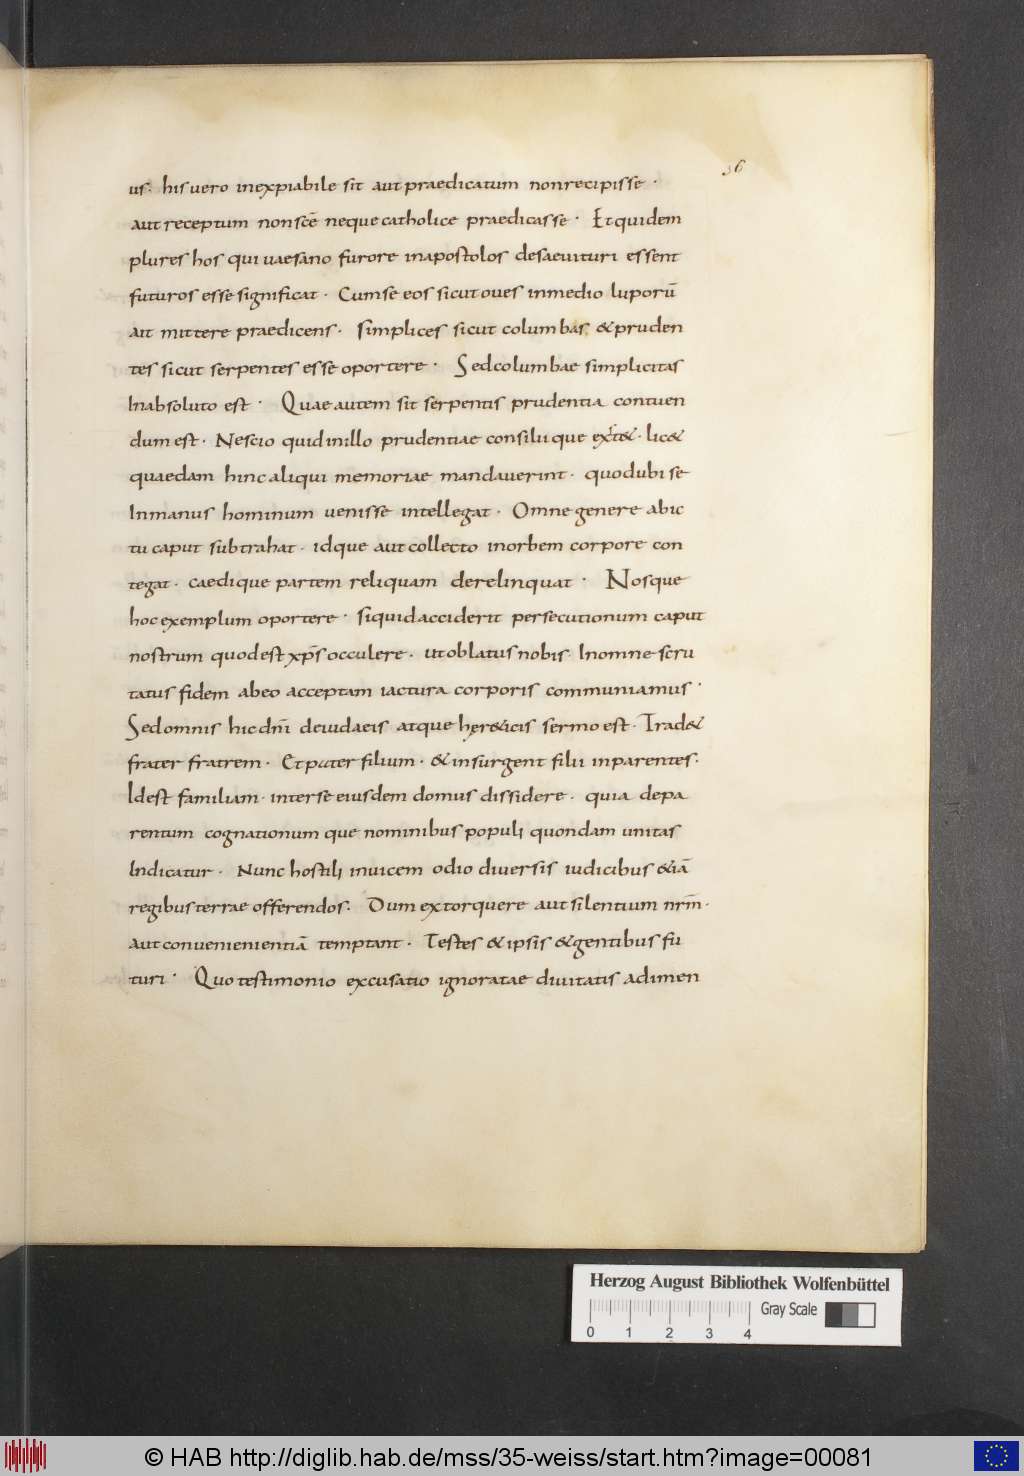 36
us. his uero inexpiabile sit aut praedicatum non recipisse ·
aut receptum non scē neque catholice praedicasse · Et quidem
plures hos qui uaesano furore in apostolos desaeuituri essent
futuros esse significat · Cum se eos sicut oues in medio luporū
ait mittere praedicens · Simplices sicut columbas & pruden
tes sicut serpentes esse oportere · Sed columbae simplicitas
In absoluto est · Quae autem sit serpentis prudentia contuen
dum est · Nescio quid in illo prudentiae consilii que · lic&
quaedam hinc aliqui memoriae mandauerint · quod ubi se
In manus hominum uenisse intellegat · Omne genere ab ic
tu caput subtrahat · idque aut collecto in orbem corpore con
tegat · caedique partem reliquam derelinquat · Nosque
hoc exemplum oportere · si quid acciderit persecutionum caput
nostrum quod est xp̄s occulere · ut oblatus nobis In omne scru
tatus fidem ab eo acceptam iactura corporis communiamus ·
Sed omnis hic dn̄i de iudaeis atque her&icis sermo est · Trad&
frater fratrem · Et pater filium · & insurgent filii in parentes ·
Id est familiam · inter se eiusdem domus dissidere · quia de pa
rentum cognationum que nominibus populi quondam unitas
Indicatur · Nunc hostili inuicem odio diuersis iudicibus &iā
regibus terrae offerendos · Dum extorquere aut silentium nrm̄ ·
aut conuenienientiā temptant · Testes & ipsis & gentibus fu
turi · Quo testimonio excusatio ignoratae diuitatis adimen
Herzog August Bibliothek Wolfenbüttel
Gray Scale
0 1 2 3 4
© HAB http://diglib.hab.de/mss/35-weiss/start.htm?image=00081